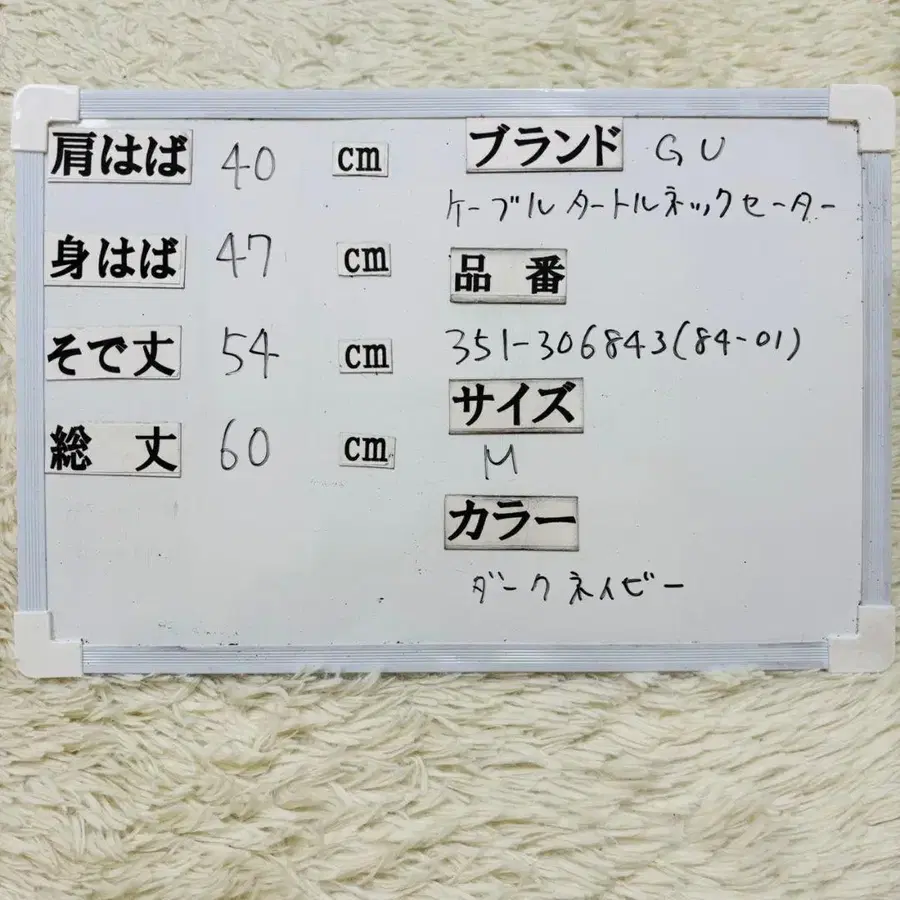 肩はば 40 cm
身はば 47 cm
そで丈 54 cm
総丈 60 cm
ブランド GU
ケーブルタートルネックセーター
品番
351-306843(84-01)
サイズ
M
カラー
ダークネイビー